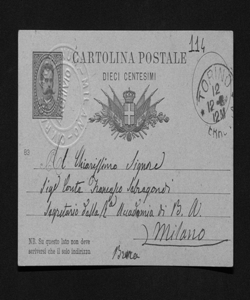 114
CARTOLINA POSTALE
DIECI CENTESIMI
TORINO
12
Al Chiarissimo Signore
Sigr Conte Francesco Sebregondi
Segretario della Ra Accademia di B. A.
Milano
NB. Su questo lato non deve
scriversi che il solo indirizzo
Brera